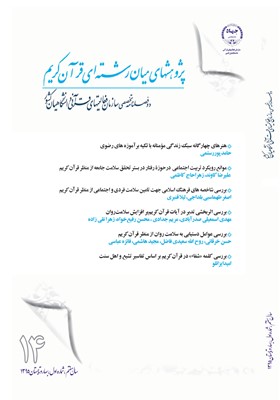 پژوهشهای میان رشته‌ای قرآن کریم
دوفصلنامه تخصصی سازمان فعالیتهای قرآنی دانشگاهیان کشور
هنرهای چهارگانه سبک زندگی مؤمنانه با تکیه بر آموزه های رضوی
حامد پوررستمی
موانع رویکرد تربیت اجتماعی در حوزهٔ رفتار در بستر تحقق سلامت جامعه از منظر قرآن کریم
علیرضا کاوند، زهرا حاج کاظمی
بررسی شاخصه های فرهنگ اسلامی جهت تأمین سلامت فردی و اجتماعی از منظر قرآن کریم
اصغر طهماسبی بلداجی، لیلا قنبری
بررسی اثربخشی تدبر در آیات قرآن کریم بر افزایش سلامت روان
مهدی اسمعیلی صدرآبادی، مریم جدادی، محسن رفیع‌خواه، زهرا تقی زاده
بررسی عوامل دستیابی به سلامت روان از منظر قرآن کریم
حسن خرقانی، روح الله سعیدی فاضل، مجید هاشمی، فائزه عباسی
بررسی کلمه «شفاء» در قرآن کریم بر اساس تفاسیر تشیع و اهل سنت
۱۴
سال هفتم، شماره اول، بهار و تابستان ۱۳۹۵